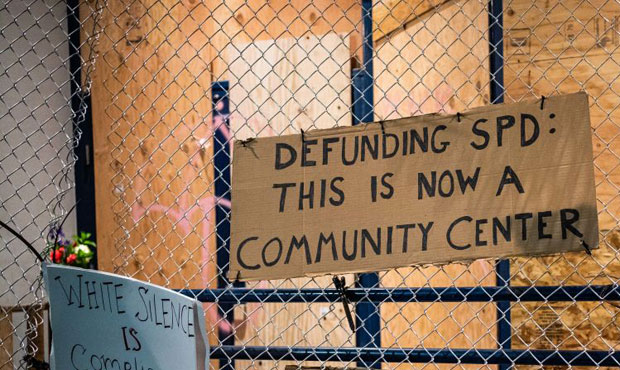 DEFUNDING SPD:
THIS IS NOW A
COMMUNITY CENTER
WHITE SILENCE
IS